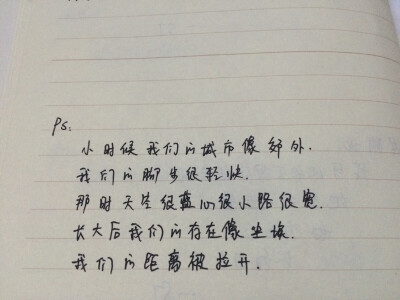 Ps:
小时候我们的城市像郊外.
我们的脚步很轻快.
那时天空很蓝心很小路很宽.
长大后我们的存在像尘埃.
我们的距离被拉开.